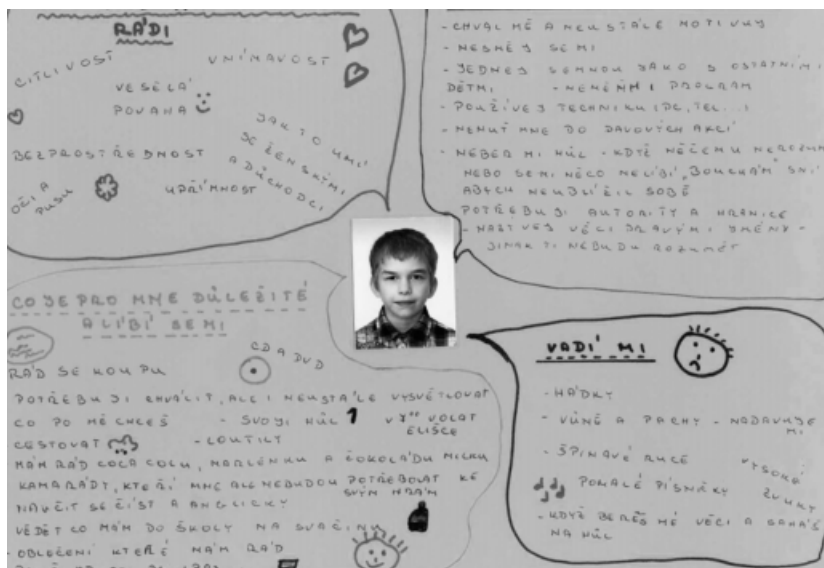 RÁDI
CITLIVOST
VNÍMAVOST
VESELÁ
POVAHA
JAK TO UMÍ
SE ŽENSKÝMI
A DŮCHODCI
BEZPROSTŘEDNOST
OČI A
PUSU
UPŘÍMNOST
- CHVAL MĚ A NEUSTÁLE MOTIVUJ
- NESMĚJ SE MI
- JEDNEJ SEMNOU JAKO S OSTATNÍMI
DĚTMI - NEMĚŇ MI PROGRAM
- POUŽÍVEJ TECHNIKU (PC, TEL...)
- NENUŤ MNE DO DAVOVÝCH AKCÍ
- NEBER MI HŮL - KDYŽ NĚČEMU NEROZUM
NEBO SE MI NĚCO NELÍBÍ, "BOUCHÁM" S NÍ
ABYCH NEUBLÍŽIL SOBĚ
POTŘEBUJI AUTORITY A HRANICE
- NAZÝVEJ VĚCI PRAVÝMI JMÉNY -
JINAK TI NEBUDU ROZUMĚT
CO JE PRO MNE DŮLEŽITÉ
A LÍBÍ SE MI
CD A DVD
RÁD SE KOUPU
POTŘEBUJI CHVÁLIT, ALE I NEUSTÁLE VYSVĚTLOVAT
CO PO MĚ CHCEŠ - SVOJI HŮL V 7°° VOLAT
ELIŠCE
CESTOVAT - LOUTILY
MÁM RÁD COCA COLU, MARLENKU A ČOKOLÁDU MILKU
KAMARÁDY, KTEŘÍ MNE ALE NEBUDOU POTŘEBOVAT KE
SVÝM HRÁM
NAUČIT SE ČÍST A ANGLICKY
VĚDĚT CO MÁM DO ŠKOLY NA SVAČINU
- OBLEČENÍ KTERÉ MÁM RÁD
VADÍ MI
- HÁDKY
- VŮNĚ A PACHY - NADÁVKY JE
MI
- ŠPINAVÉ RUCE
VYSOKÉ
ZVUKY
POMALÉ PÍSNIČKY
- KDYŽ BEREŠ MÉ VĚCI A SAHÁŠ
NA HŮL